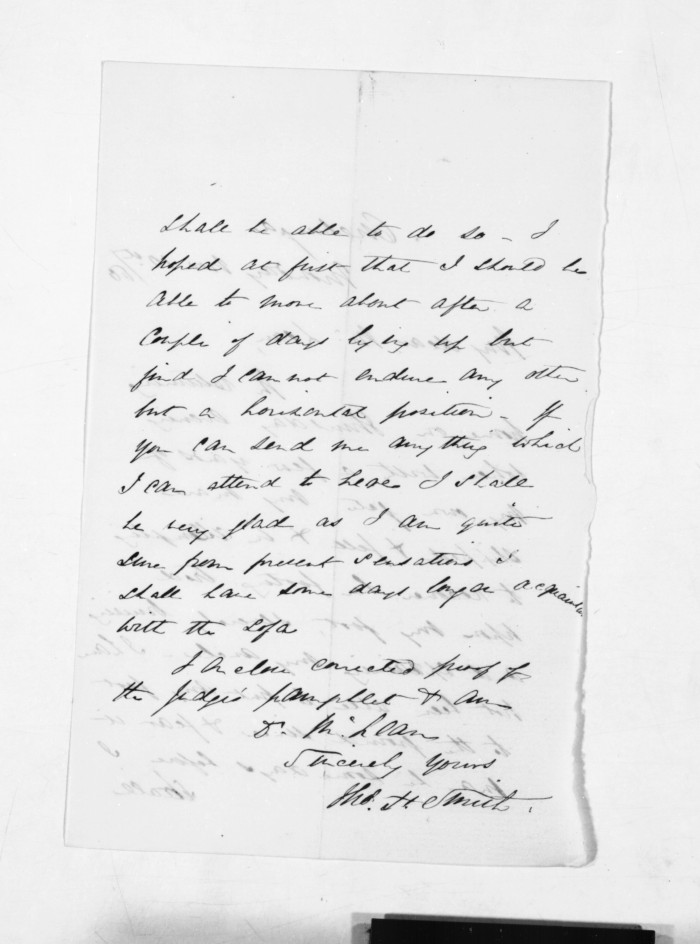 shall be able to do so - I
hoped at first that I should be
able to move about after a
couple of days lying up but
find I cannot endure any other
but a horizontal position - If
you can send me anything which
I can attend to here I shall
be very glad as I am quite
sure from present sensations I
shall have some days longer acquaintance
with the Sofa
I enclose corrected proof of
the Judge's pamphlet & am
Dr. McLean
Sincerely Yours
Thos. H Smith.